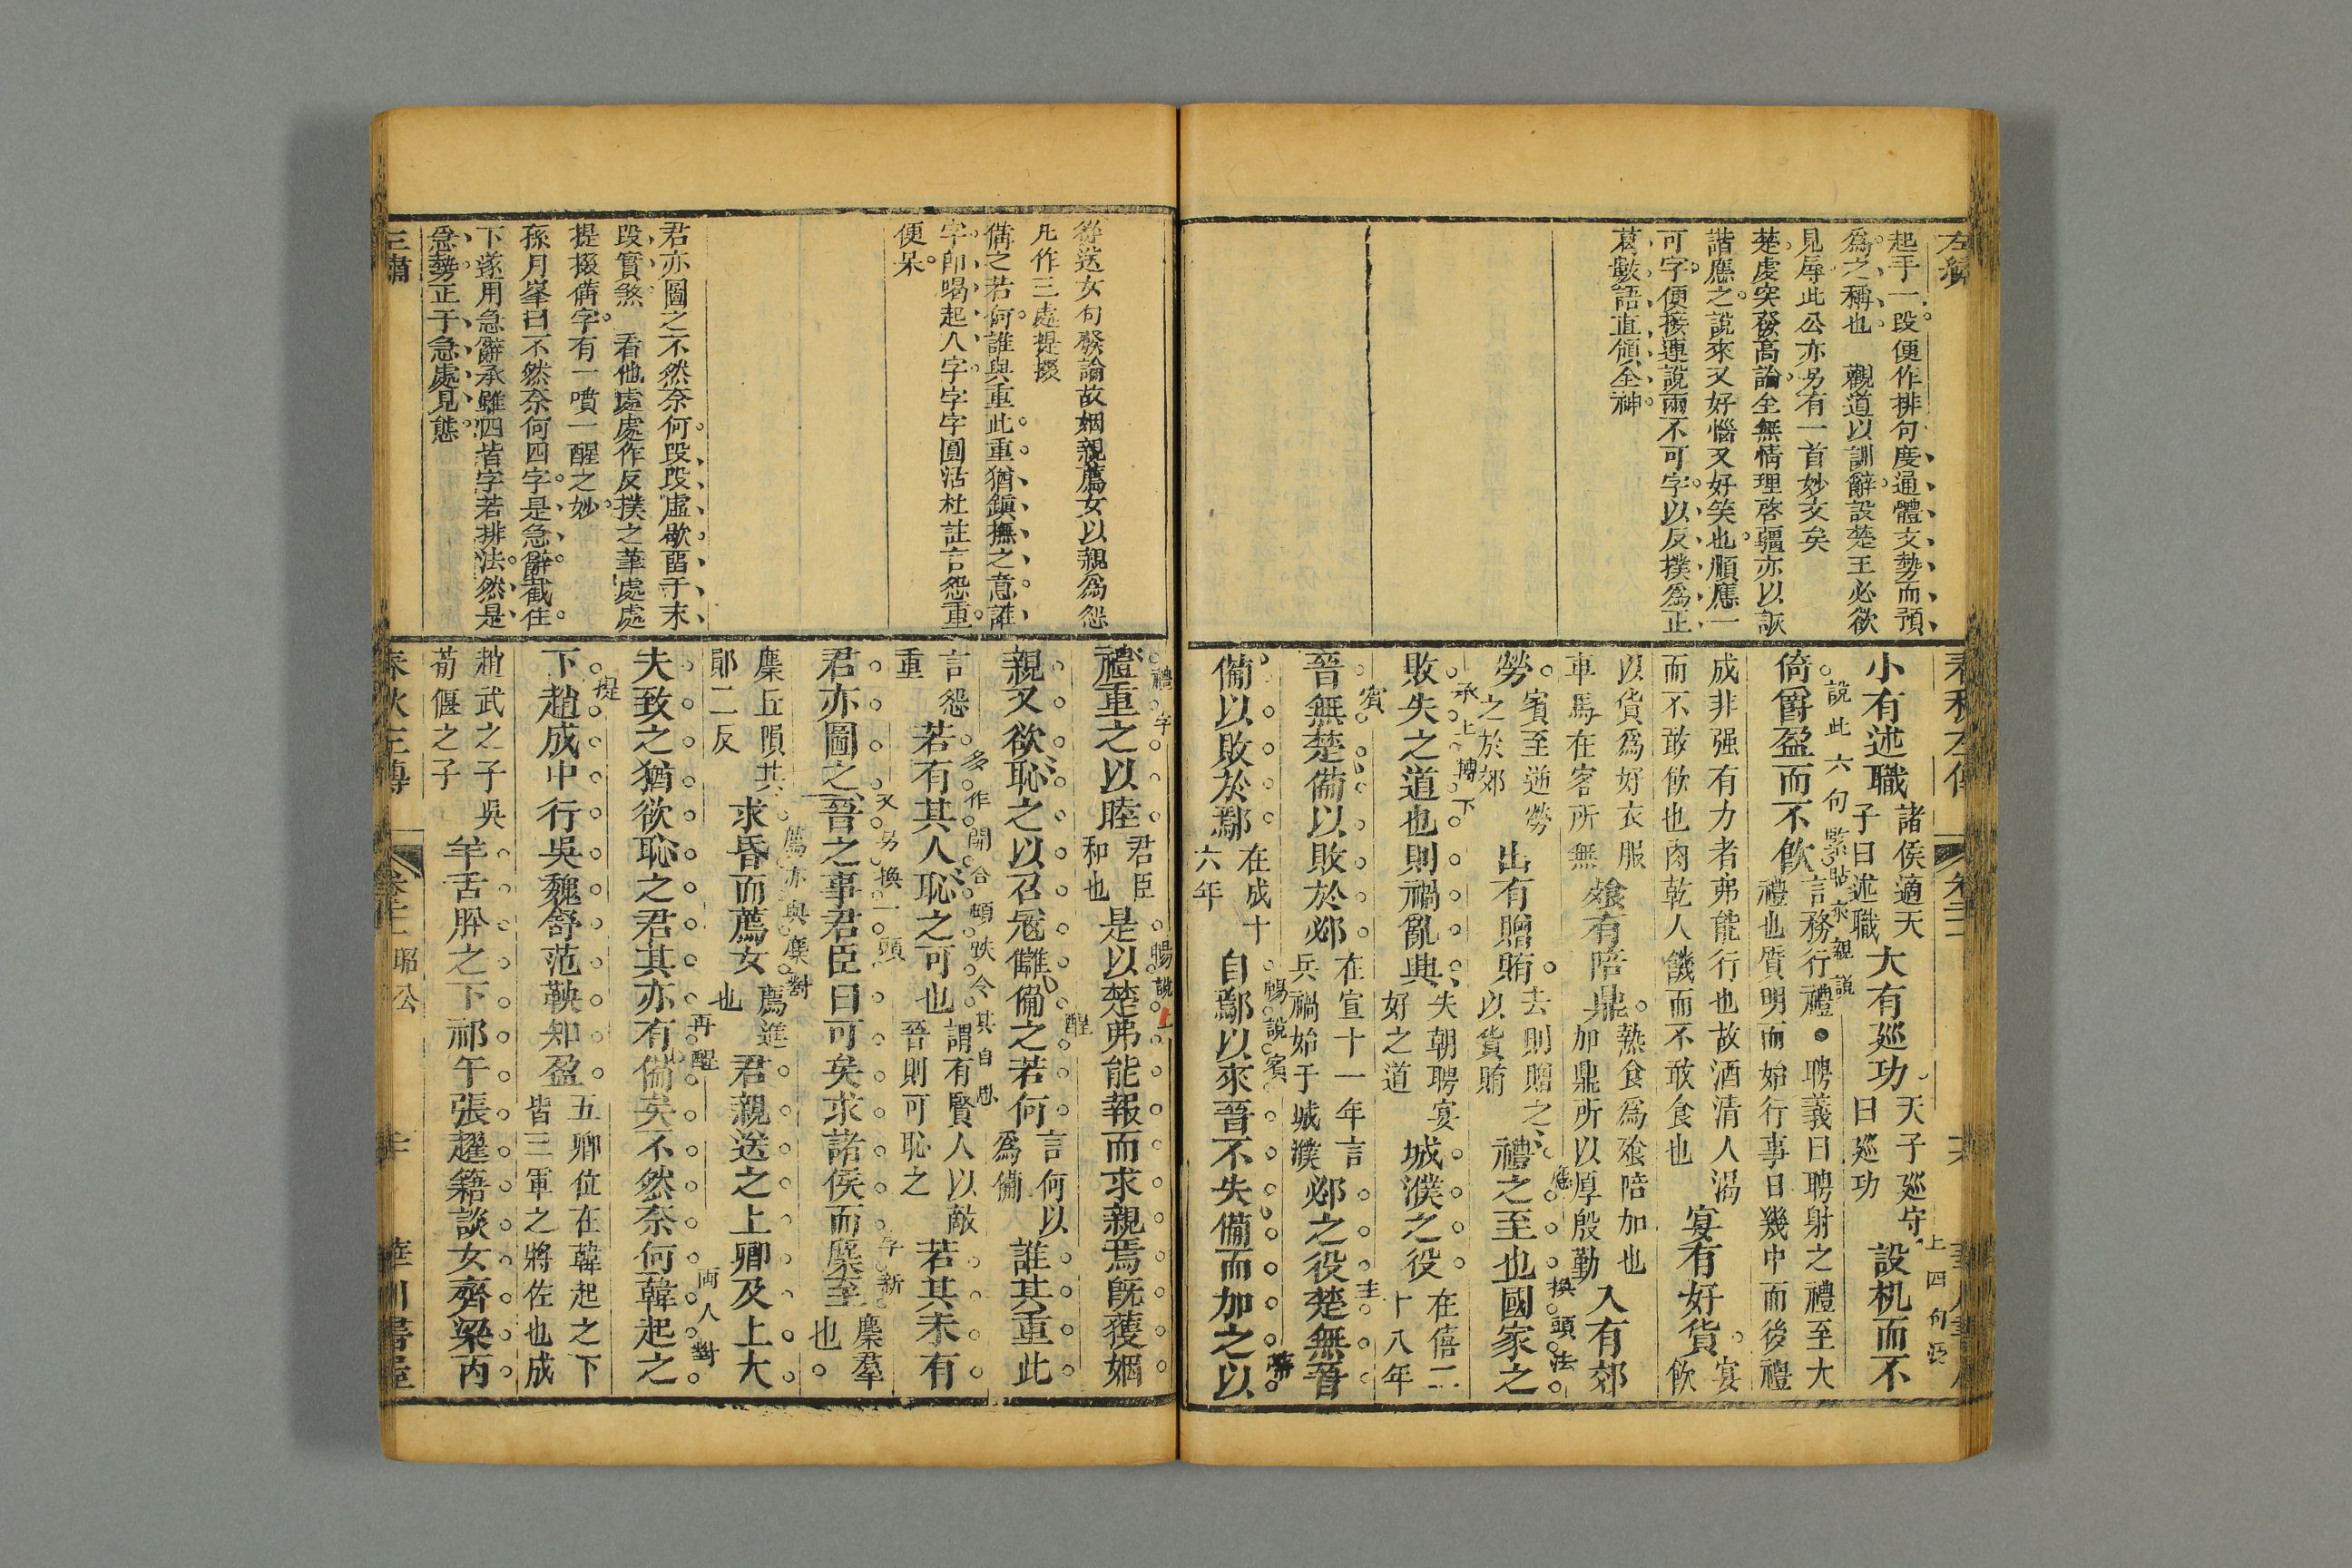 起于一段便作排句度通體文勢而預
爲之稱也　觀道以訓辭設楚王必欲
見辱此公亦另有一首妙文矣
楚處突發高論全無情理啓疆亦以詼
諧應之說來又好惱又好笑也順應一
可字便接連說兩不可字以反撲爲正
葛數語直領全神
小有述職諸侯適天子曰述職大有巡功天子巡守曰巡功設机而不
倚爵盈而不飲言務行禮禮也質明而始行事日幾中而後禮
聘義曰聘射之禮至大
成非强有力者弗能行也故酒清人渴
而不敢飲也肉乾人饑而不敢食也宴有好貨宴飲
以貨爲好衣服車馬在客所無飧有陪鼎熟食爲飧陪加也加鼎所以厚殷勤入有郊
勞賓至逆勞之於郊出有贈賄去則贈之以貨賄禮之至也國家之
敗失之道也則禍亂興失朝聘宴好之道城濮之役在僖二十八年
晉無楚備以敗於邲在宣十一年言兵禍始于城濮邲之役楚無晉
備以敗於鄢在成十六年自鄢以來晉不失備而加之以
說此六句緊貼來親說
上四句
承上轉下
賓
應
換頭法
主
暢說賓
從送女句發論故姻親薦女以親爲怨
凡作三處提掇
備之若何誰與重此重猶鎭撫之意誰
字卽喝起人字字字圓活杜註言怨重
便呆
君亦圖之不然奈何段段虛歇畱于末
段實煞　看他處處作反撲之筆處處
提掇備字有一噴一醒之妙
孫月峯曰不然奈何四字是急辭截住
下遂用急辭承雖四皆字若排法然是
急勢正于急處見態
禮重之以睦君臣和也是以楚弗能報而求親焉旣獲姻
親又欲恥之以召寇讎備之若何言何以爲備誰其重此
言怨重若有其人恥之可也謂有賢人以敵晉則可恥之若其未有
君亦圖之晉之事君臣曰可矣求諸侯而麇至麇羣也
麇丘隕其郥二反求昏而薦女薦進也君親送之上卿及上大
夫致之猶欲恥之君其亦有備矣不然奈何韓起之
下趙成中行吳魏舒范鞅知盈五卿位在韓起之下皆三軍之將佐也成
趙武之子吳荀偃之子羊舌肸之下祁午張趯籍談女齊梁丙
禮字
暢說
醒
多作開合頓跌令其自思
又另換一頭
字新
薦亦與麇對
再醒
兩人對
提
昭公